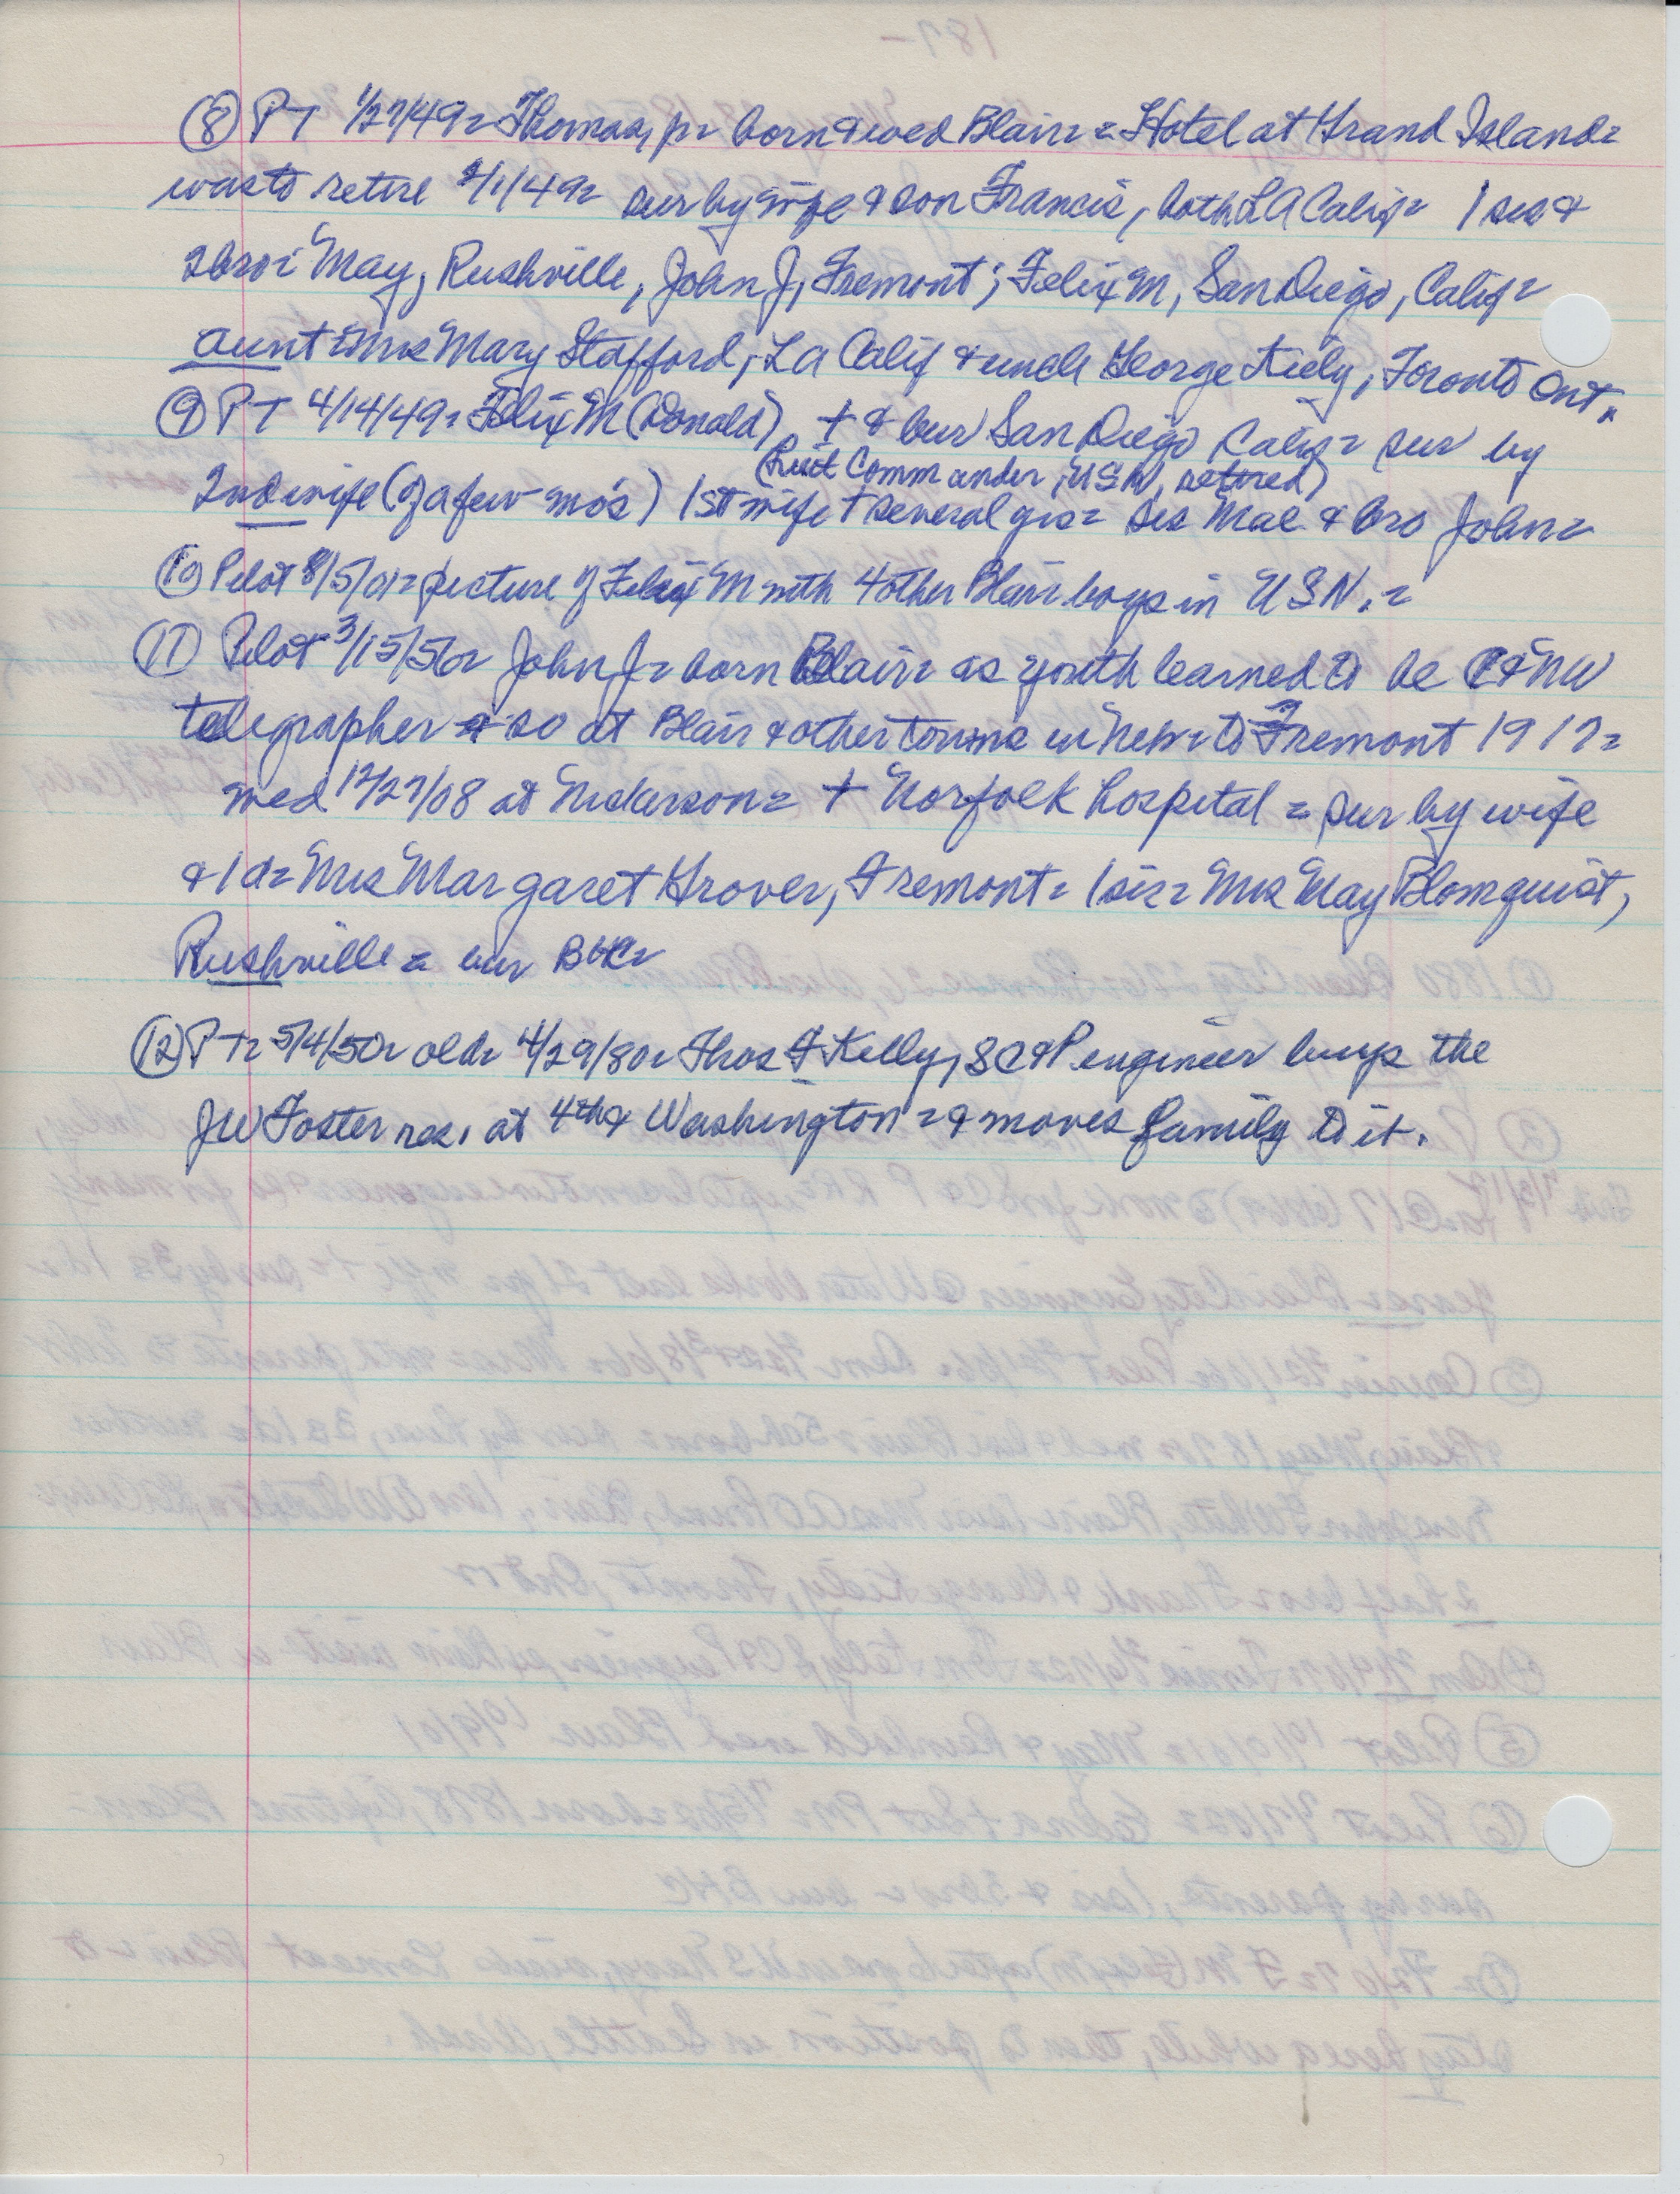 ⑧ PT 1/27/49= Thomas, jr= born & wed Blair= = Hotel at Grand Island=
was to retire 2/1/49= sur by wife & son Francis, both LA Calif= 1 sis &
2 bros: May, Rushville, John J, Fremont; Felix M, San Diego, Calif=
aunt: Mrs Mary Stafford, LA Calif & uncle George Kiely, Toronto Ont.
⑨ PT 4/14/49= Felix M (Donald) † & bur San Diego Calif= sur by
(Lieut Commander, USN, retired)
2nd wife (of a few mo's) 1st wife † several yrs= sis Mae & bro John=
⑩ Pilot 8/5/01= picture of Felix M with 4 other Blair boys in USN.=
⑪ Pilot 3/15/56= John J= born Blair= as youth learned to be C&NW
telegrapher & so at Blair & other towns in Neb= to Fremont 1917=
wed 12/27/08 at Nickerson= † Norfolk hospital = sur by wife
& 1 d= Mrs Margaret Grover, Fremont= 1 sis= Mrs May Blomquist,
Rushville = bur BHC=
⑫ PT= 5/4/50= old= 4/29/80= Thos F Kelly, SC&P engineer buys the
JW Foster res. at 4th & Washington = & moves family to it.